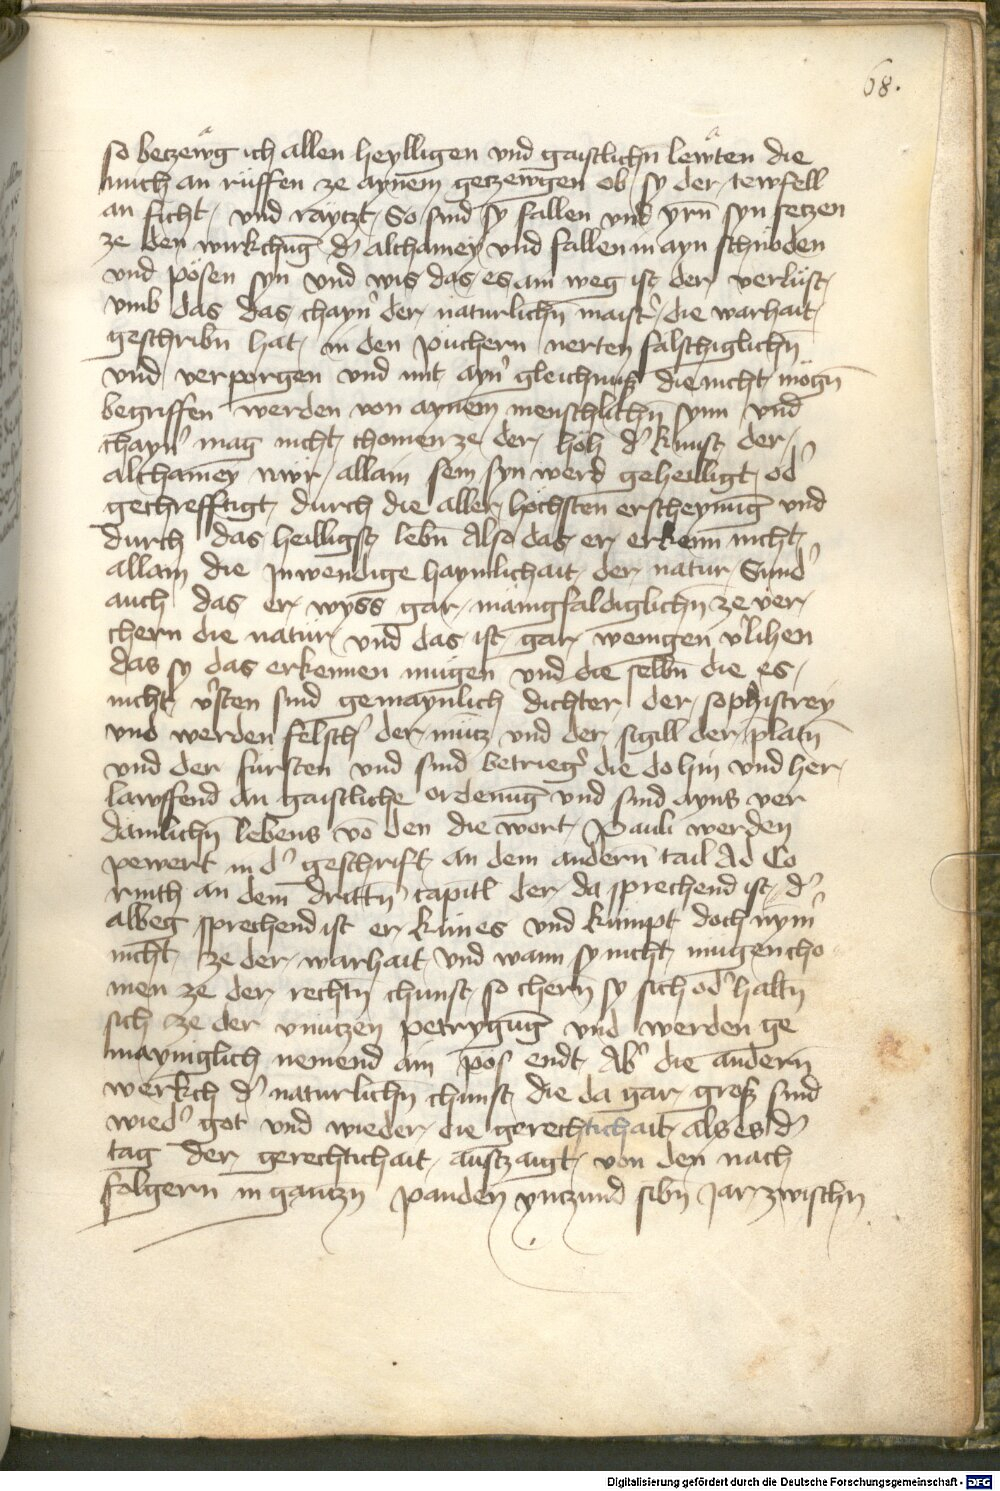 68.
so betzewg ich allen heylligen vnd gaistlichn̄ lewten die
mich an rüffen ze aynem getzewgen ob sy der tewfell
an ficht vnd raytzt So sind sy fallen vnd yrn̄ syn setzen
ze den wirkchūg d' alchamey vnd fallen in ayn schnöden
vnd pösen syn vnd wis das es ain weg ist der verlüst
vmb das das chayn' der naturlichn̄ maist' die warhait
geschribn̄ hat in den püchern nerten falschiglichn̄
vnd verporgen vnd mit ayn' gleichnuß die nicht mögn̄
begriffen werden von aynem menschlichn̄ synn vnd
chayn' mag nicht chomen ze der höh d' kunst der
alchamey nwr allain sein syn werd geheilligt od'
gechrefftigt durch die aller höchsten erscheynūg vnd
durch das heilligst lebn̄ Also das er erkenn nicht
allain die Inwendige haymlichait der natur Sund'
auch das er wyss gar mānigfaldiglichn̄ ze ver
chern die natur vnd das ist gar wenigen v'lihen
das sy das erkennen mugen vnd die selbn̄ die es
nicht v'sten sind gemaynlich dichter der sophistrey
vnd werden felsch' der mütz vnd der sigill der platn̄
vnd der fursten vnd sind betrieg' die do hin vnd her
lawffend an gaistliche ordenūg vnd sind ayns ver
damlichn̄ lebens vō den die wort Pauli werden
pewert in d' geschrift an dem andern̄ tail Ad Co
rinth an dem̄ drittn̄ capitl der da sprechend ist d'
albeg sprechend ist er kun es vnd kumpt doch nym'
nicht ze der warhait vnd wann sy nicht mugen cho
men ze der rechtn̄ chunst so chern̄ sy sich od' haltn̄
sich ze der vnützen petrygūg vnd werden ge
mayniglich nemend ain pös endt Ab' die andern̄
werkch d' naturlichn̄ chunst die da gar groß sind
wied' got vnd wieder die gerechtichait als es d'
tag der gerechtichait austzaigt von den nach
folgern in gantzn̄ panden yntzund sibn̄ Jar zwischn̄
Digitalisierung gefördert durch die Deutsche Forschungsgemeinschaft - DFG